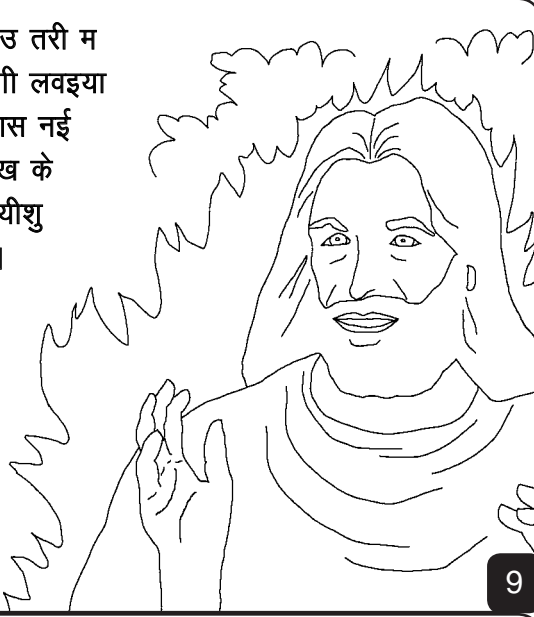 उ तरी म
लवइया
नई
के
यीशु
।
9